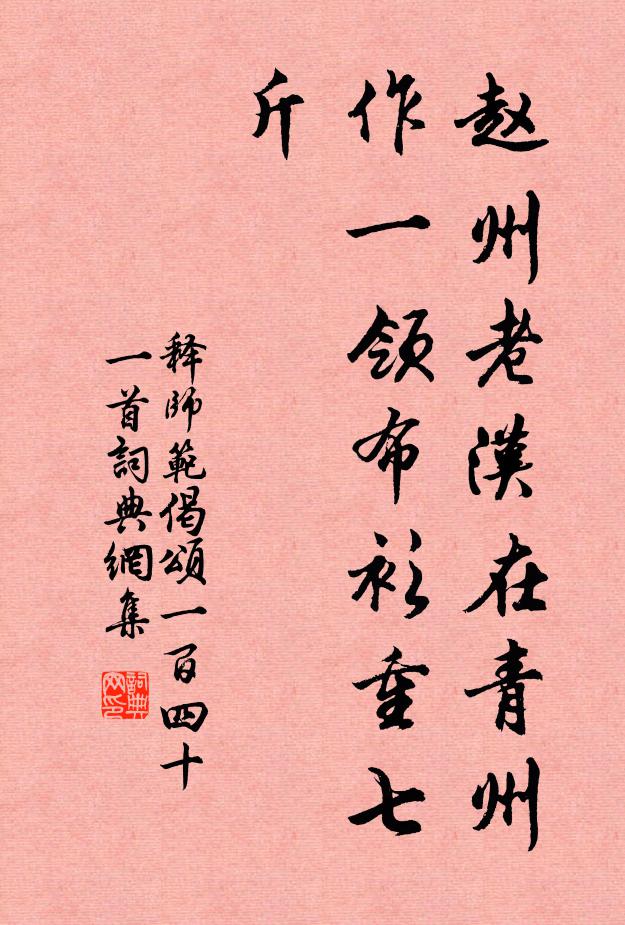 赵州老漢在青州
作一領布衫重七
斤
释師範偈頌一百四十
一首詞典網集
詞典
网印